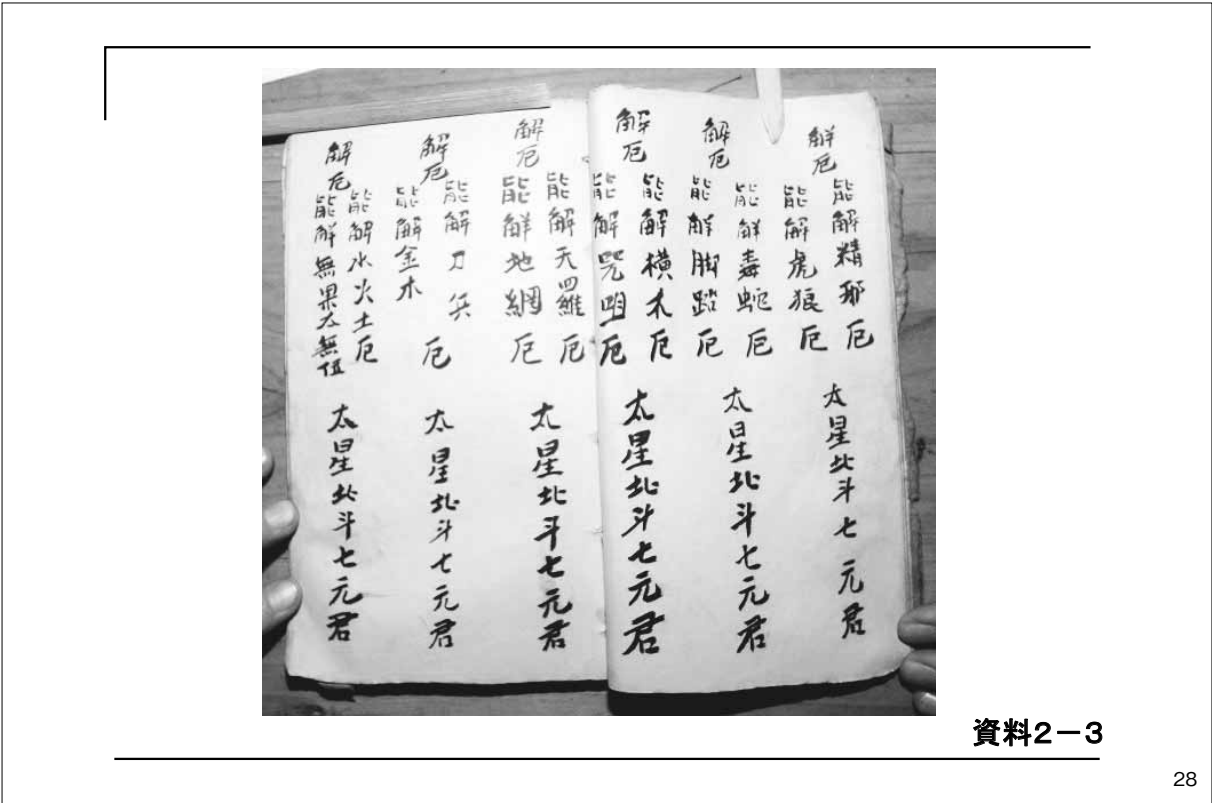 解厄
能解精邪厄
能解虎狼厄
太星北斗七元君
解厄
能解毒蛇厄
能解脚路厄
太星北斗七元君
解厄
能解横木厄
能解咒咀厄
太星北斗七元君
解厄
能解天羅厄
能解地網厄
太星北斗七元君
解厄
能解刀兵
能解金木
厄
太星北斗七元君
解厄
能解水火土厄
能解無果大無
太星北斗七元君
資料2-3
28